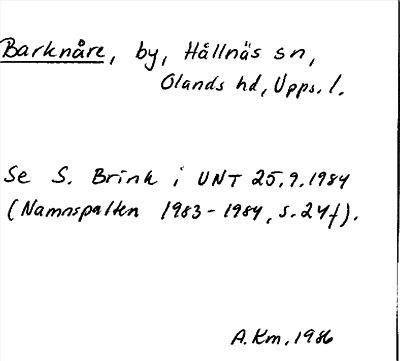 Barknåre, by, Hållnäs sn,
Olands hd, Upps. l.
Se S. Brink i UNT 25.9.1984
(Namnspalten 1983-1984, s. 24f).
A. Km, 1986